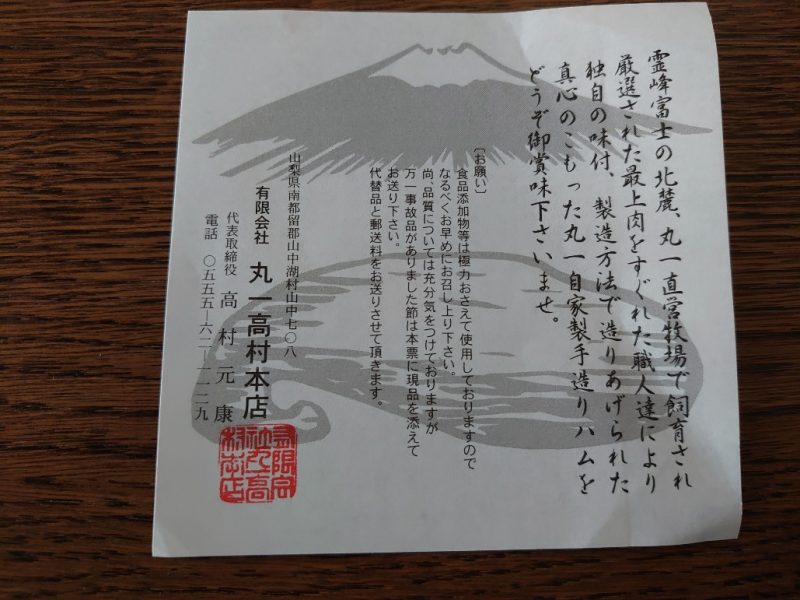 霊峰富士の北麓、丸一直営牧場で飼育され
厳選された最上肉をすぐれた職人達により
独自の味付、製造方法で造りあげられた
真心のこもった丸一自家製手造りハムを
どうぞ御賞味下さいませ。
〔お願い〕
食品添加物等は極力おさえて使用しておりますので
なるべくお早めにお召し上り下さい。
尚、品質については充分気をつけておりますが
万一事故品がありました節は本票に現品を添えて
お送り下さい。
代替品と郵送料をお送りさせて頂きます。
山梨県南都留郡山中湖村山中七〇八
有限会社 丸一高村本店
代表取締役 高村元康
電話 〇五五五―六二―一一二九
有限会
社丸一高
村本店